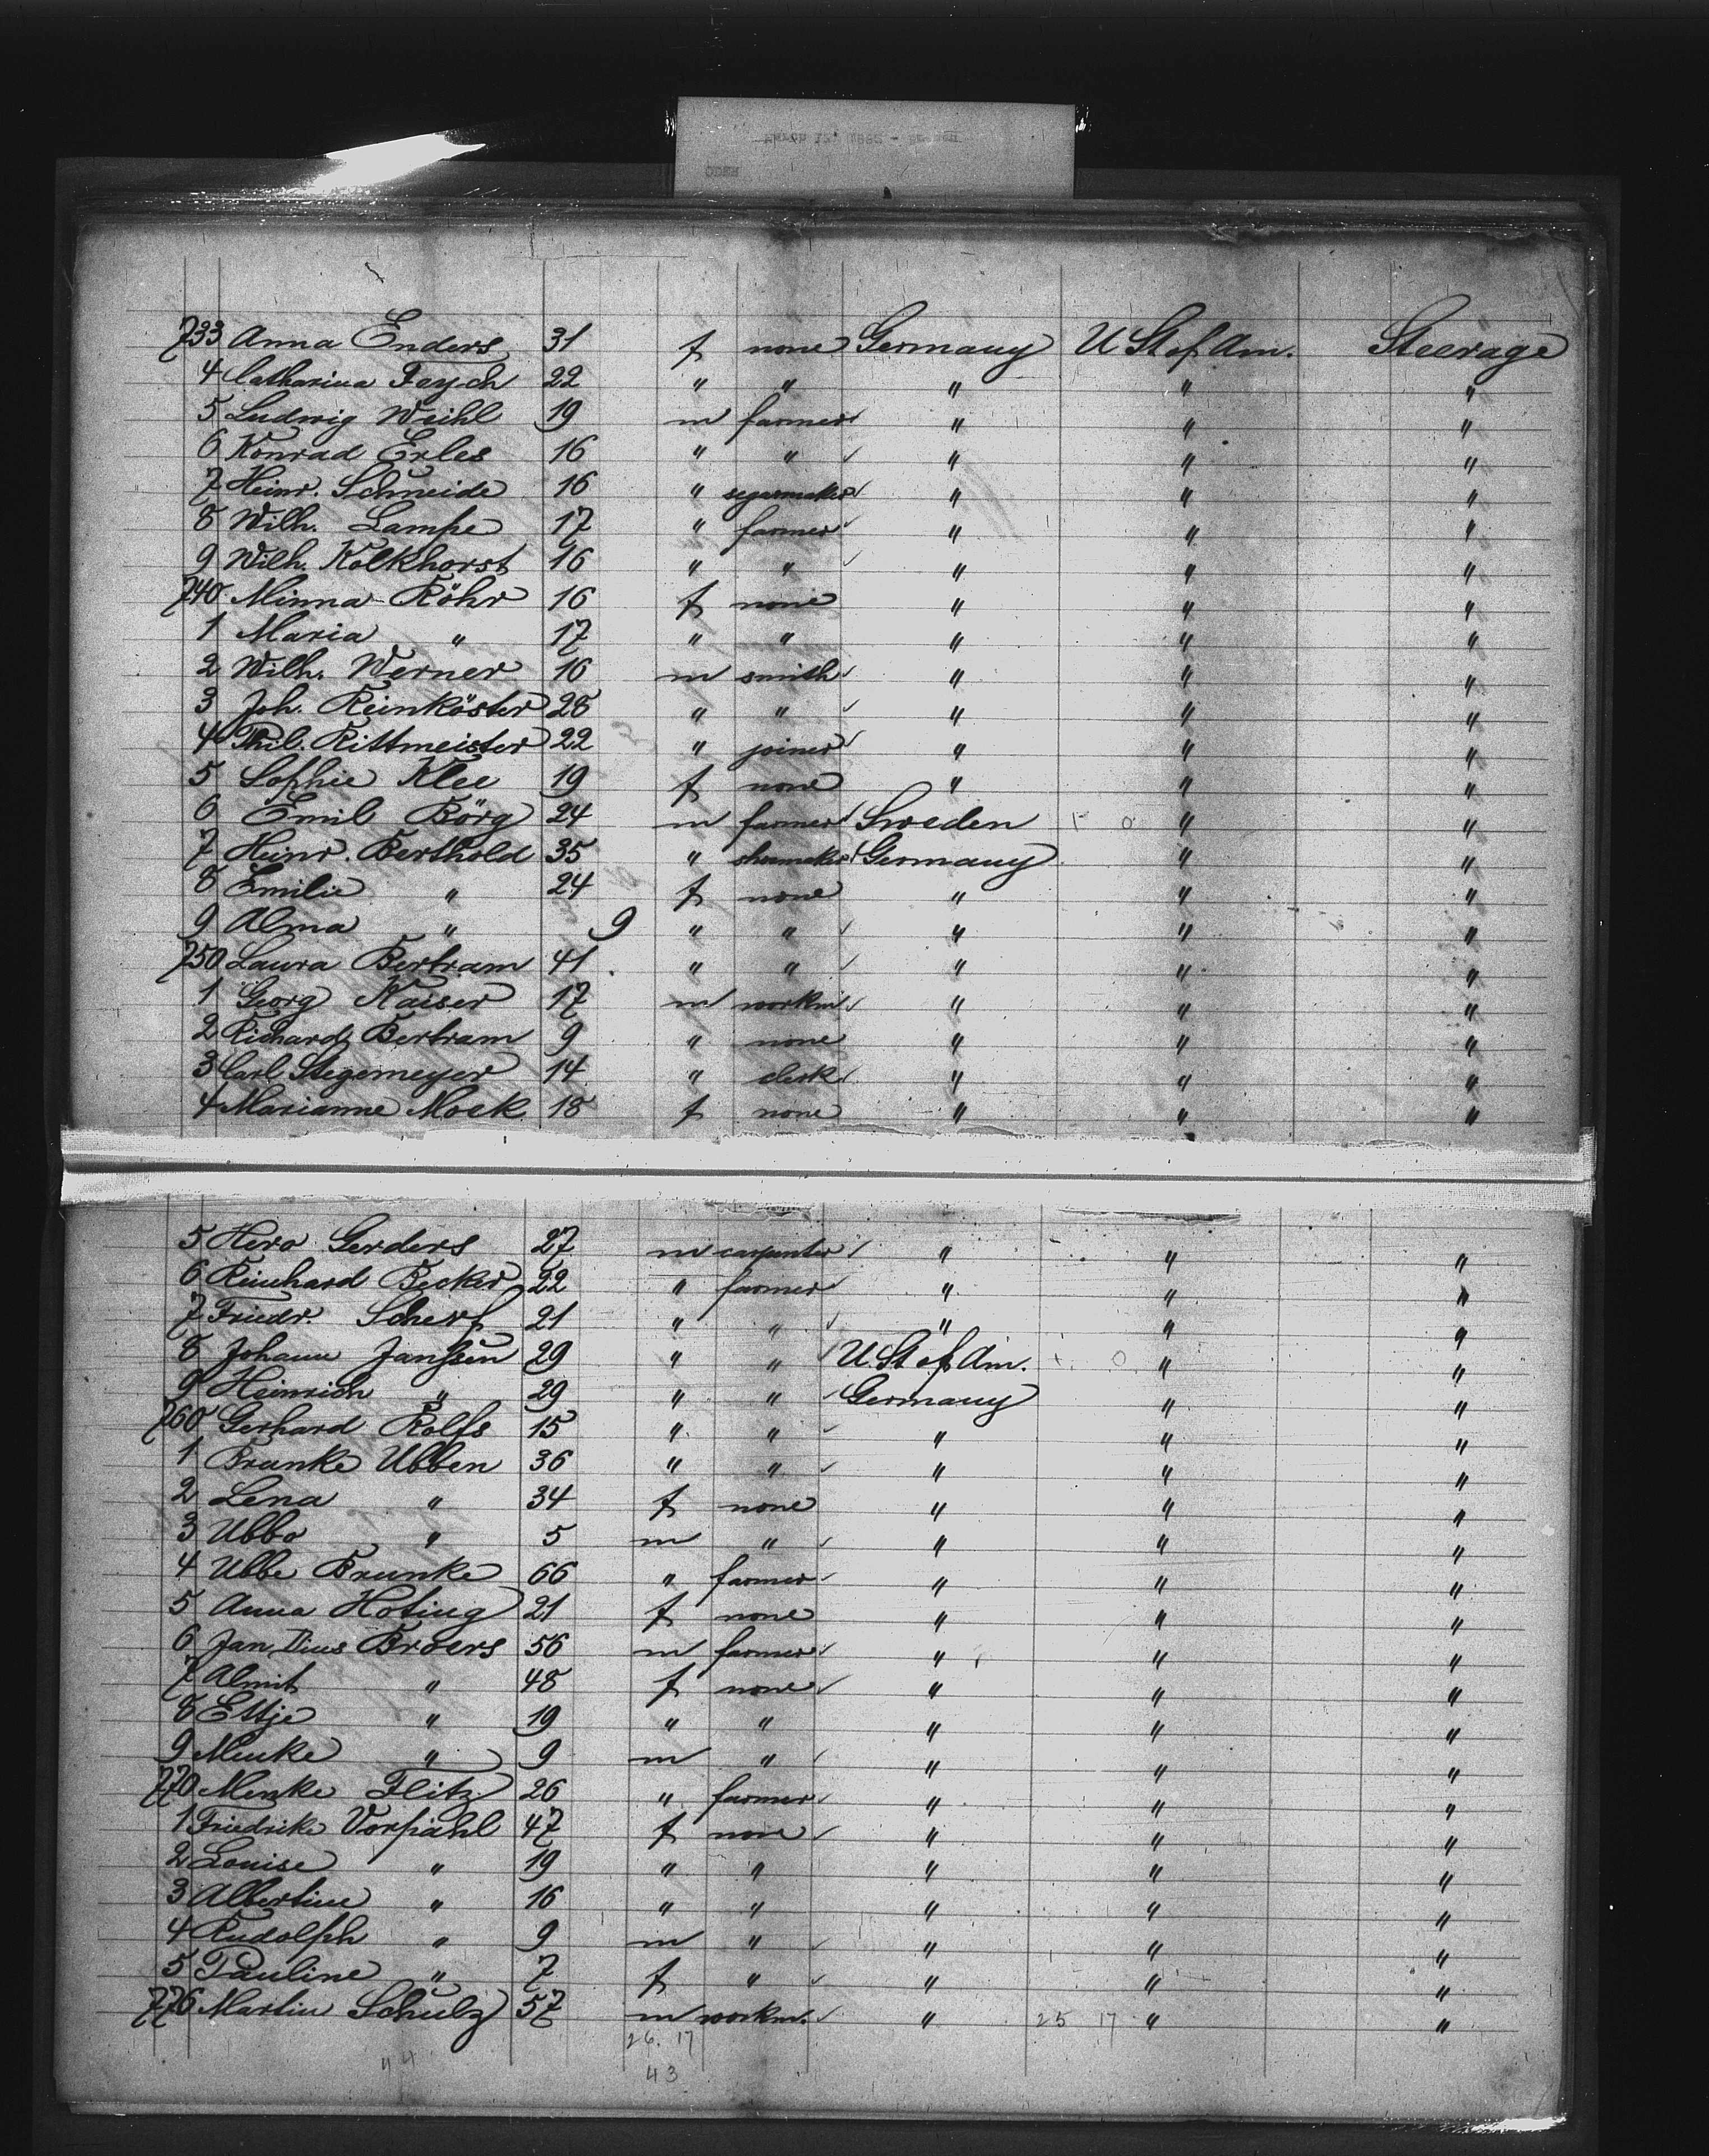 733 Anna Enders 31 f none Germany U St of Am. Steerage
4 Catharina Feych 22 " " " " "
5 Ludwig Weihl 19 m farmer " " "
6 Konrad Erles 16 " " " " "
7 Heinr. Schneide 16 " segarmaker " " "
8 Wilh. Lampe 17 " farmer " " "
9 Wilh. Kolkhorst 16 " " " " "
740 Minna Röhr 16 f none " " "
1 Maria " 17 " " " " "
2 Wilh. Werner 16 m smith " " "
3 Joh. Reinköster 28 " " " " "
4 Phil. Rittmeister 22 " joiner " " "
5 Sophie Klee 19 f none " " "
6 Emil Börg 24 m farmer Sweden " "
7 Heinr. Berthold 35 " shoemaker Germany " "
8 Emilie " 24 f none " " "
9 Alma " 9 " " " " "
750 Laura Bertram 41 " " " " "
1 Georg Kaiser 17 m workm. " " "
2 Richard Bertram 9 " none " " "
3 Carl Stegemeyer 14 " clerk " " "
4 Marianne Mock 18 f none " " "
5 Hero Gerders 27 m carpenter " " "
6 Reinhard Becker 22 " farmer " " "
7 Friedr. Scherf 21 " " " " "
8 Johann Janssen 29 " " U. St of Am. " "
9 Heinrich " 29 " " Germany " "
760 Gerhard Rolfs 15 " " " " "
1 Brunke Ubben 36 " " " " "
2 Lena " 34 f none " " "
3 Ubbo " 5 m " " " "
4 Ubbe Brunke 66 " farmer " " "
5 Anna Hoting 21 f none " " "
6 Jan Broers 56 m farmer " " "
7 Almt " 48 f none " " "
8 Ettje " 19 " " " " "
9 Menke " 9 m " " " "
770 Menke Flitz 26 " farmer " " "
1 Friedrike Vorpahl 47 f none " " "
2 Louise " 19 " " " " "
3 Albertine " 16 " " " " "
4 Rudolph " 9 m " " " "
5 Pauline " 7 f " " " "
776 Martin Schulz 57 m workm. " 25 17 " "
26. 17
44 43